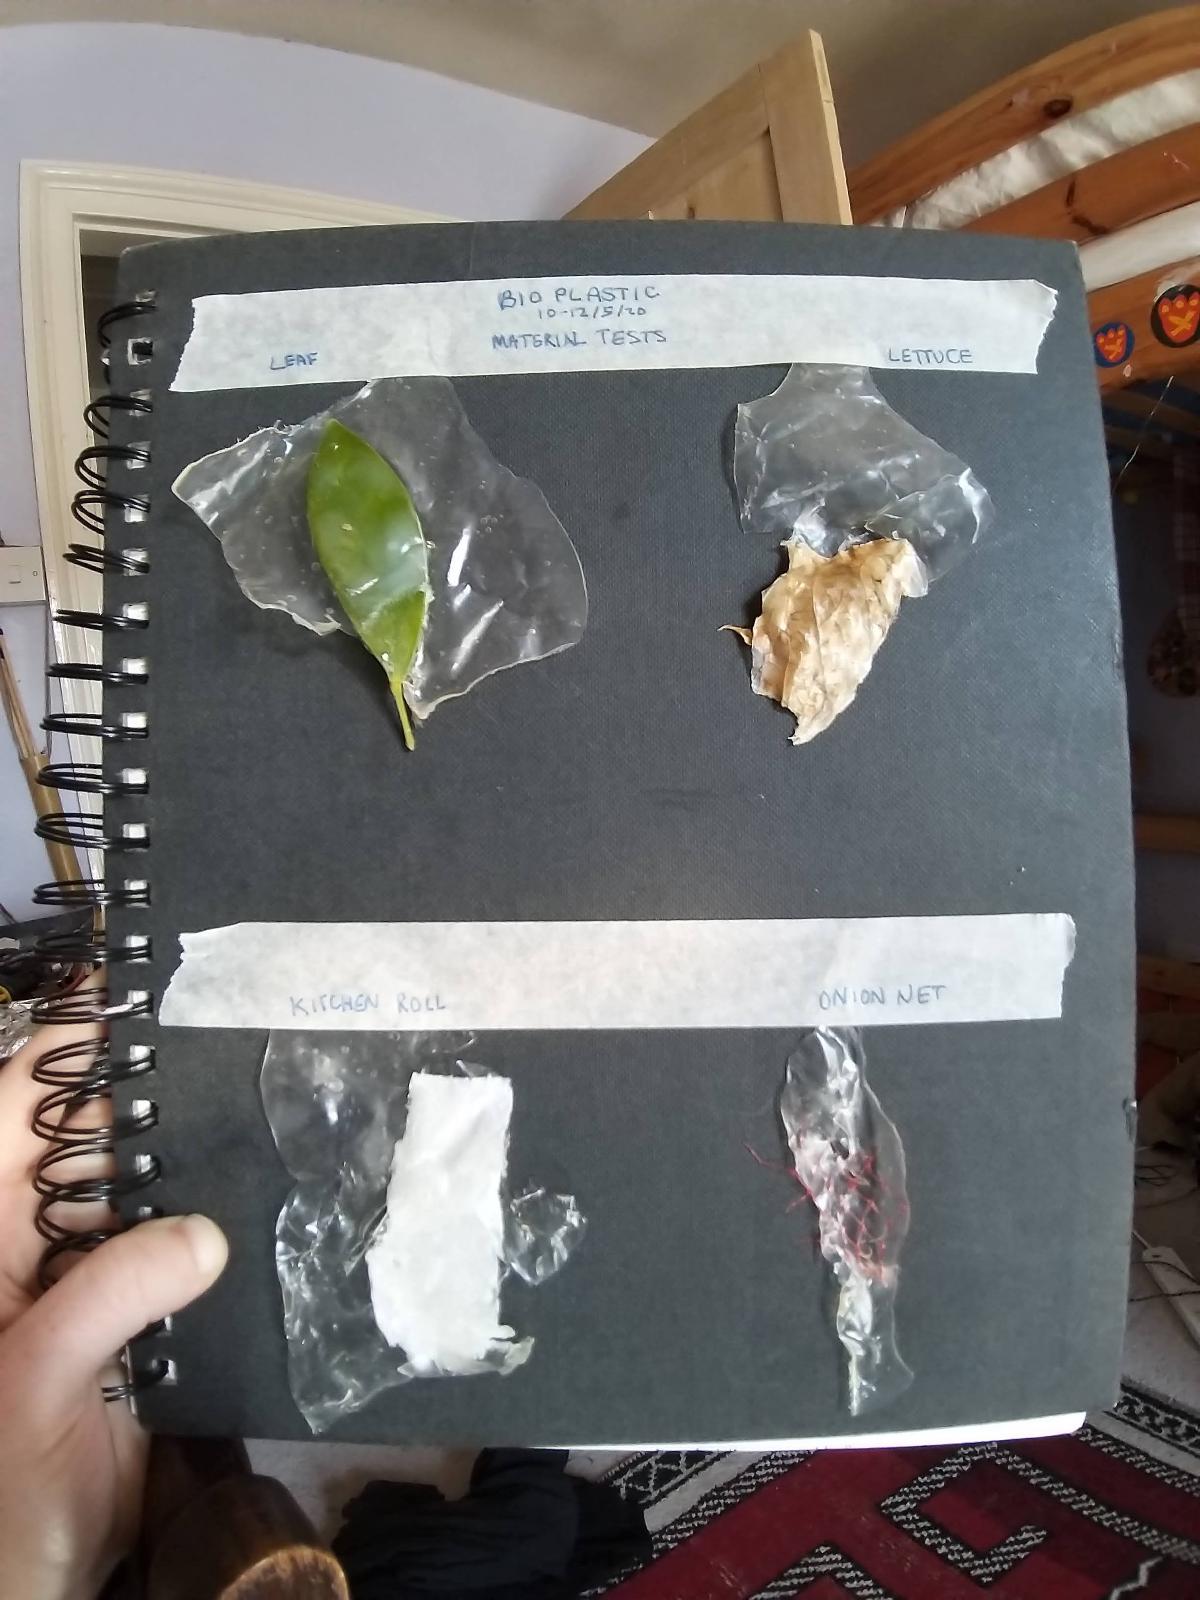 BIO PLASTIC
10-12/5/20
MATERIAL TESTS
LEAF
LETTUCE
KITCHEN ROLL
ONION NET